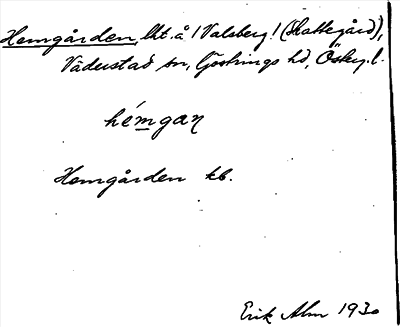 Hemgården, lht. å 1 Valsberg! (Skattegård),
Väderstad sn, Göstrings hd, Östg. l.
hémgaɳ
Hemgården kb.
Erik Alm 1930